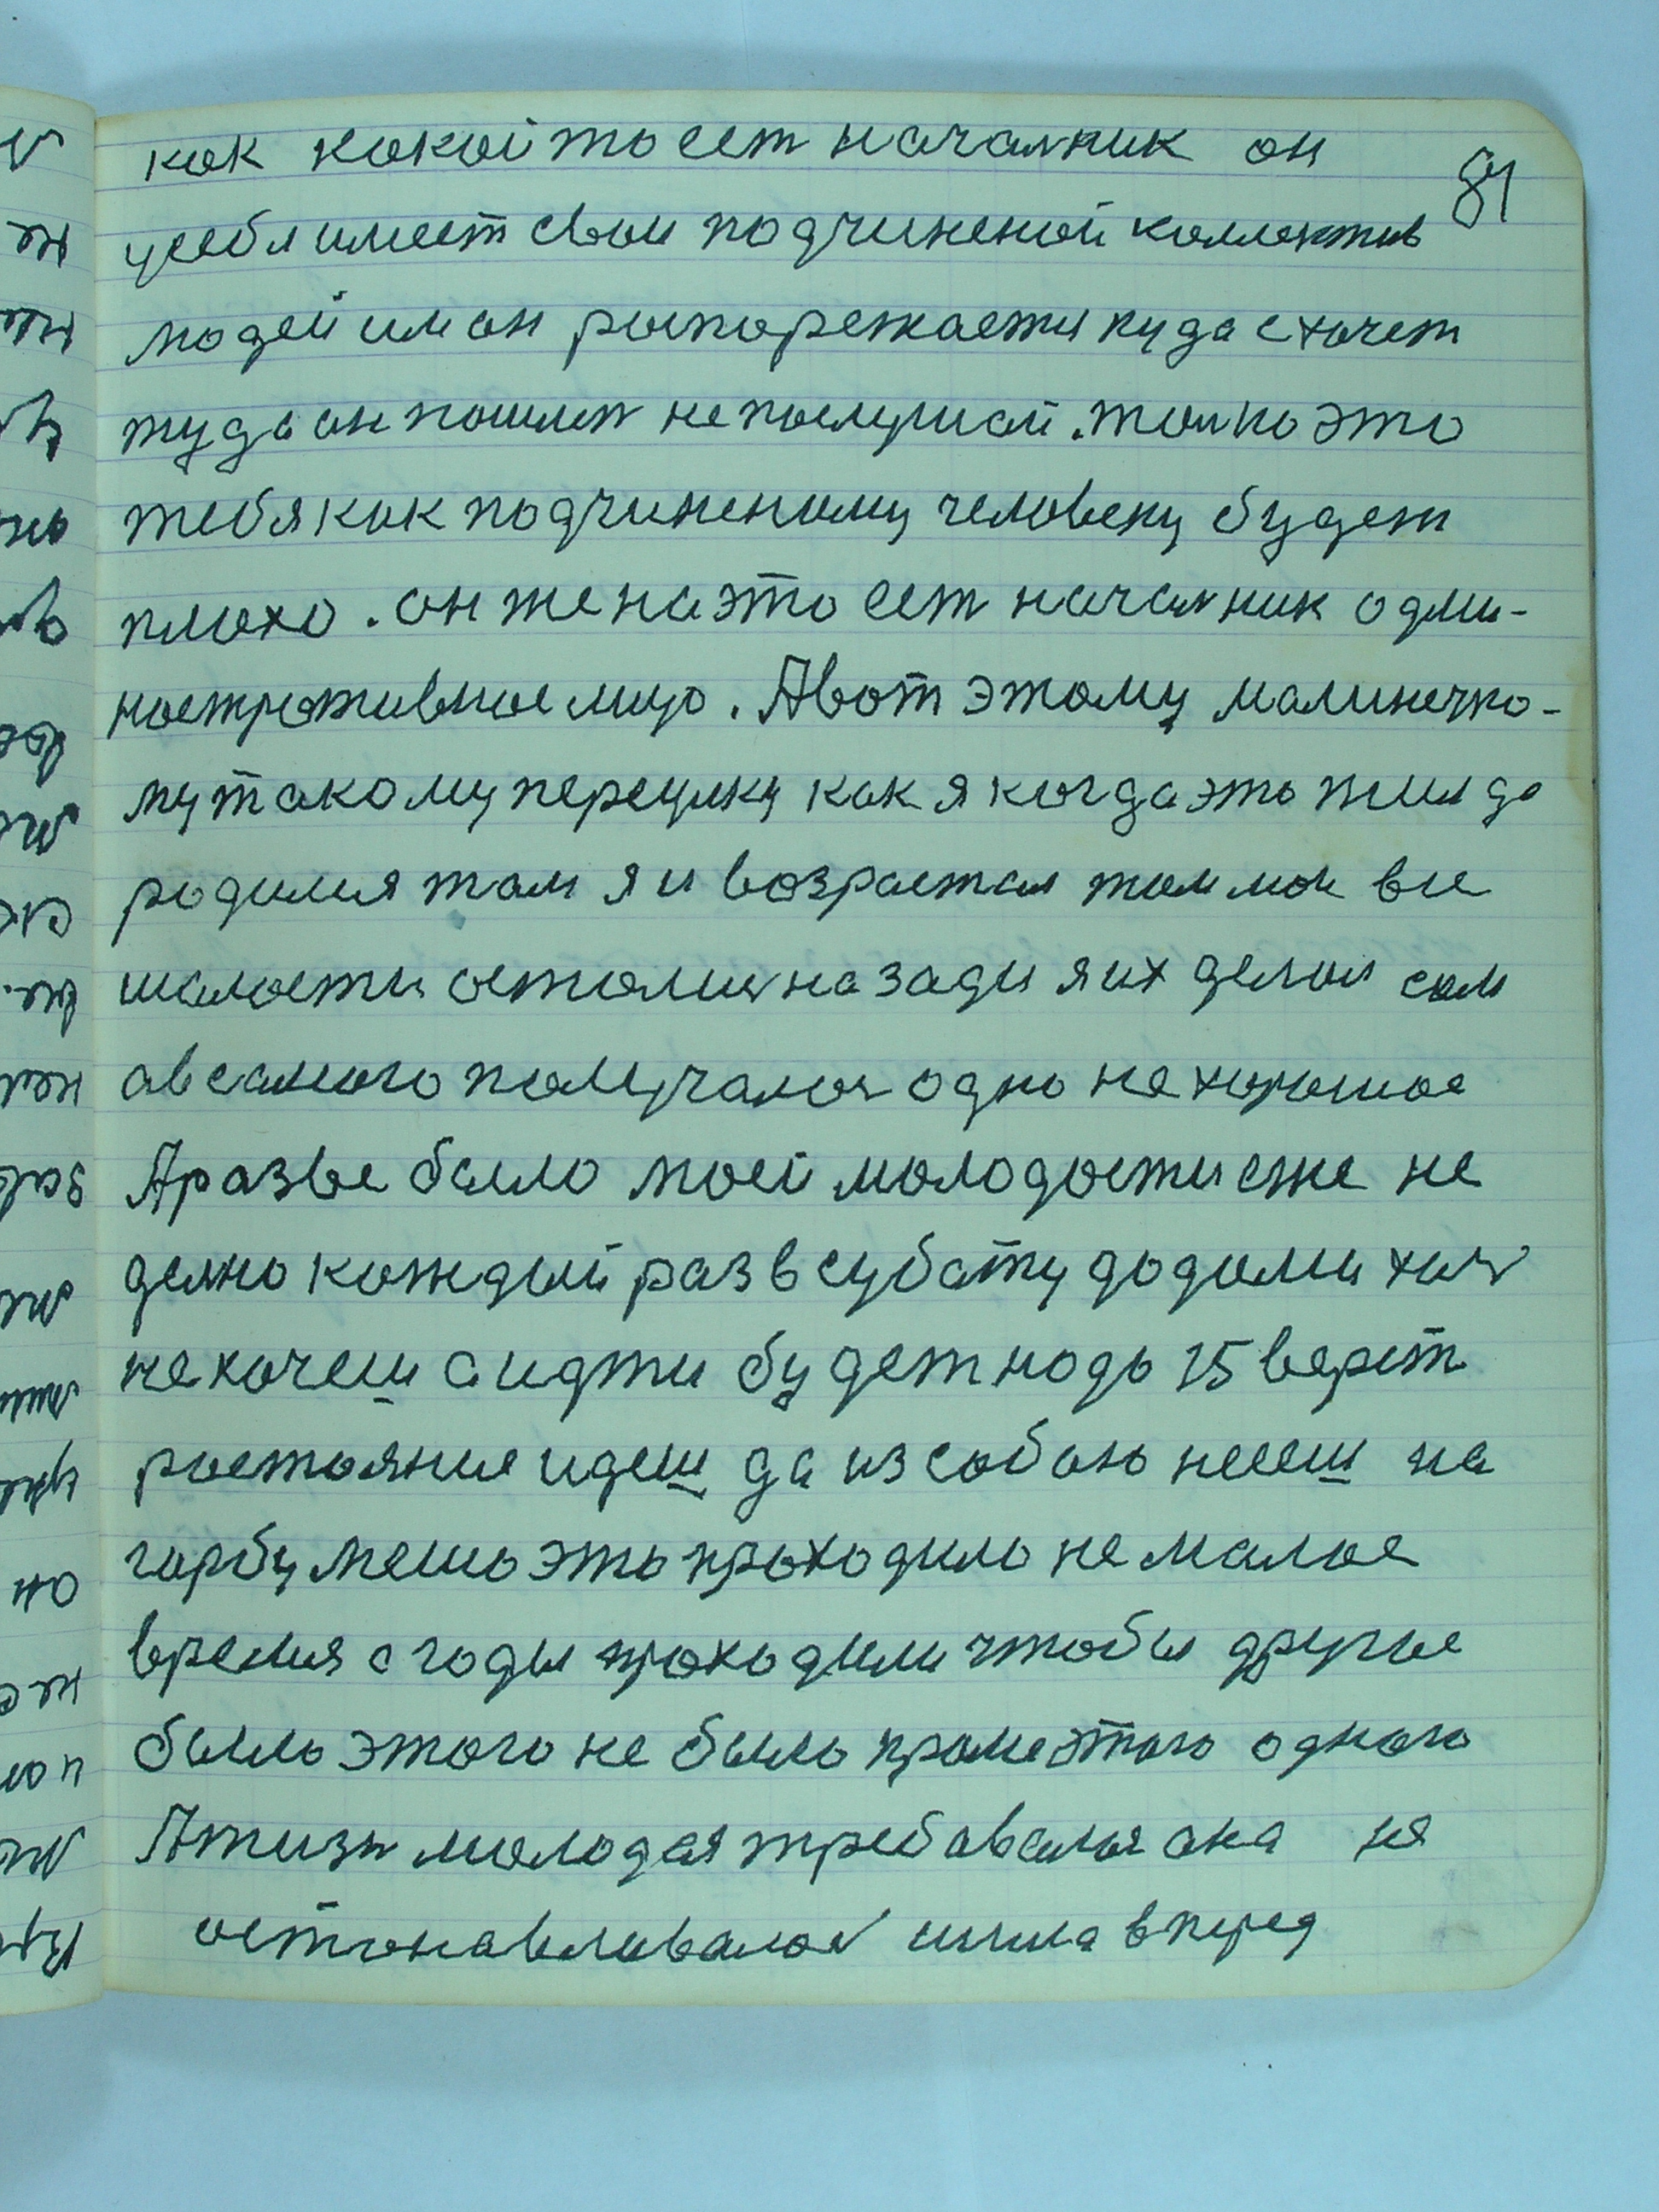 81
как какойто сет началник он
усебя имеет свои подчиненой коллектив
людей им он роспорежается куда схочет
туда он пошлет не послушай. толко это
тебя как подчиненому человеку будет
плохо. он же наэто сет началник одми-
ностротивное лицо. Авот этому малинечко-
му такому переулку как я когдаэто жил да
родился там я и возростал там мои все
шалости осталис назади я их делал сам
авсамого получалося одно не хорошое
Аразве было моей молодости еже не
делно кождый раз всуботу додому хоч
не хочеш а идти будет нодо 15 верст
ростояние идеш да из собою несеш на
горбу мешо это проходило не малое
время а годы проходили чтобы другое
было этого не было кроме этого одного
Ажизн молодая требавалося она не
останавливалос и шла вперед